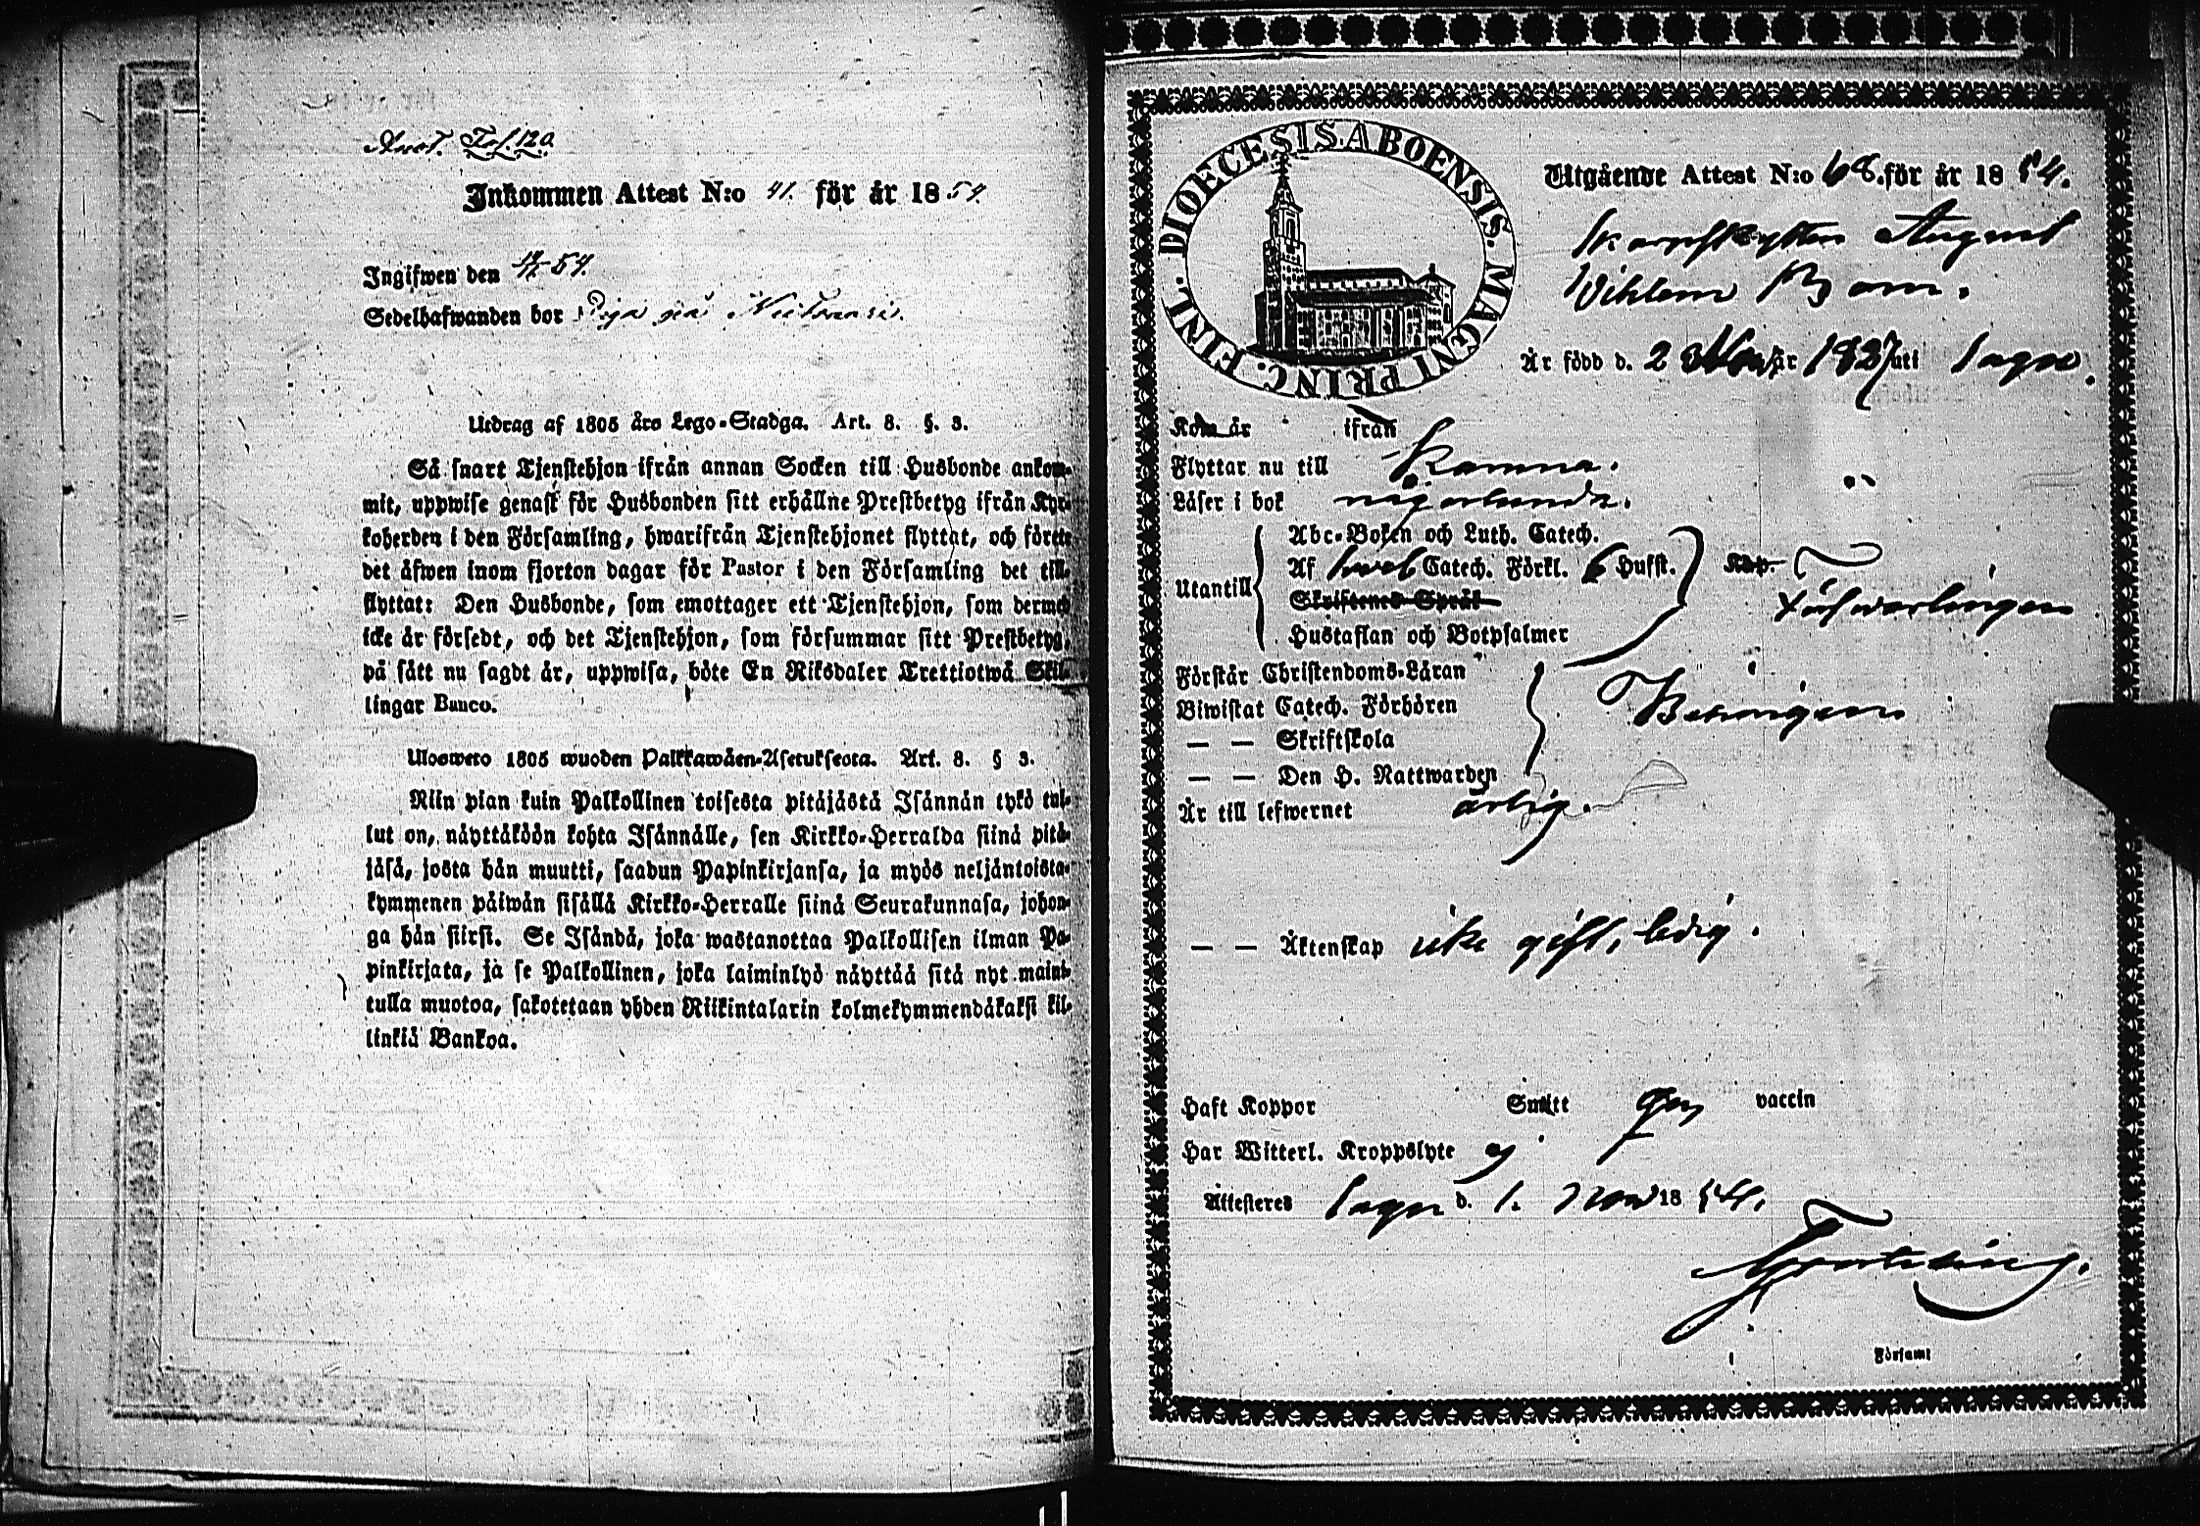 Anot. Fol. 120.
Inkommen Attest N:o 41. för år 1854.
Ingifwen den 54.
Sedelhafwanden bor Piga på
Utdrag af 1805 års Lego-Stadga. Art. 8. §. 3.
Så snart Tjenstehjon ifrån annan Socken till Husbonde ankom-
mit, uppwise genast för Husbonden sitt erhållne Prestbetyg ifrån Kyr-
koherden i den Församling, hwarifrån Tjenstehjonet flyttat, och förete
det äfwen inom fjorton dagar för Pastor i den Församling det till-
flyttat: Den Husbonde, som emottager ett Tjenstehjon, som dermed
icke är försedt, och det Tjenstehjon, som försummar sitt Prestbetyg,
på sätt nu sagdt är, uppwisa, böte En Riksdaler Trettiotwå Skil-
lingar Banco.
Ulosweto 1805 wuoden Palkkawäen-Asetuksesta. Art. 8. § 3.
Niin pian kuin Palkollinen toisesta pitäjästä Isännän tykö tul-
lut on, näyttäköön kohta Isännälle, sen Kirkko-Herralda siinä pitä-
jäsä, josta hän muutti, saadun Papinkirjansa, ja myös neljäntoista-
kymmenen päiwän sisällä Kirkko-Herralle siinä Seurakunnasa, johon-
ga hän siirsi. Se Isändä, joka wastanottaa Palkollisen ilman Pa-
pinkirjata, ja se Palkollinen, joka laiminlyö näyttää sitä nyt mainit-
tulla muotoa, sakotetaan yhden Riikintalarin kolmekymmendäkaksi kil-
linkiä Bankoa.
DIOECESIS ABOENSIS. MAGNI PRINC. FINL.
Utgående Attest N:o 68. för år 1854.
Skarpskytten August
Wihlem Bom.
Är född d. 2 år 1827 uti Sagu.
Kom år ifrån
Flyttar nu till Karuna.
Läser i bok någorlunda.
Utantill
Abc-Boken och Luth. Catech.
Af Catech. Förkl. 6 Hufst. Kap.
Skriftenes Språk
Hustaflan och Botpsalmer
Förswarligen
Förstår Christendoms-Läran
Biwistat Catech. Förhören
— — Skriftskola
— — Den H. Nattwarden
Är till lefwernet ärlig.
— — Äktenskap icke gift, ledig.
Haft Koppor Smitt vaccin
Har Witterl. Kroppslyte ej
Attesteres Sagu d. 1. Nov 1854.
Församl